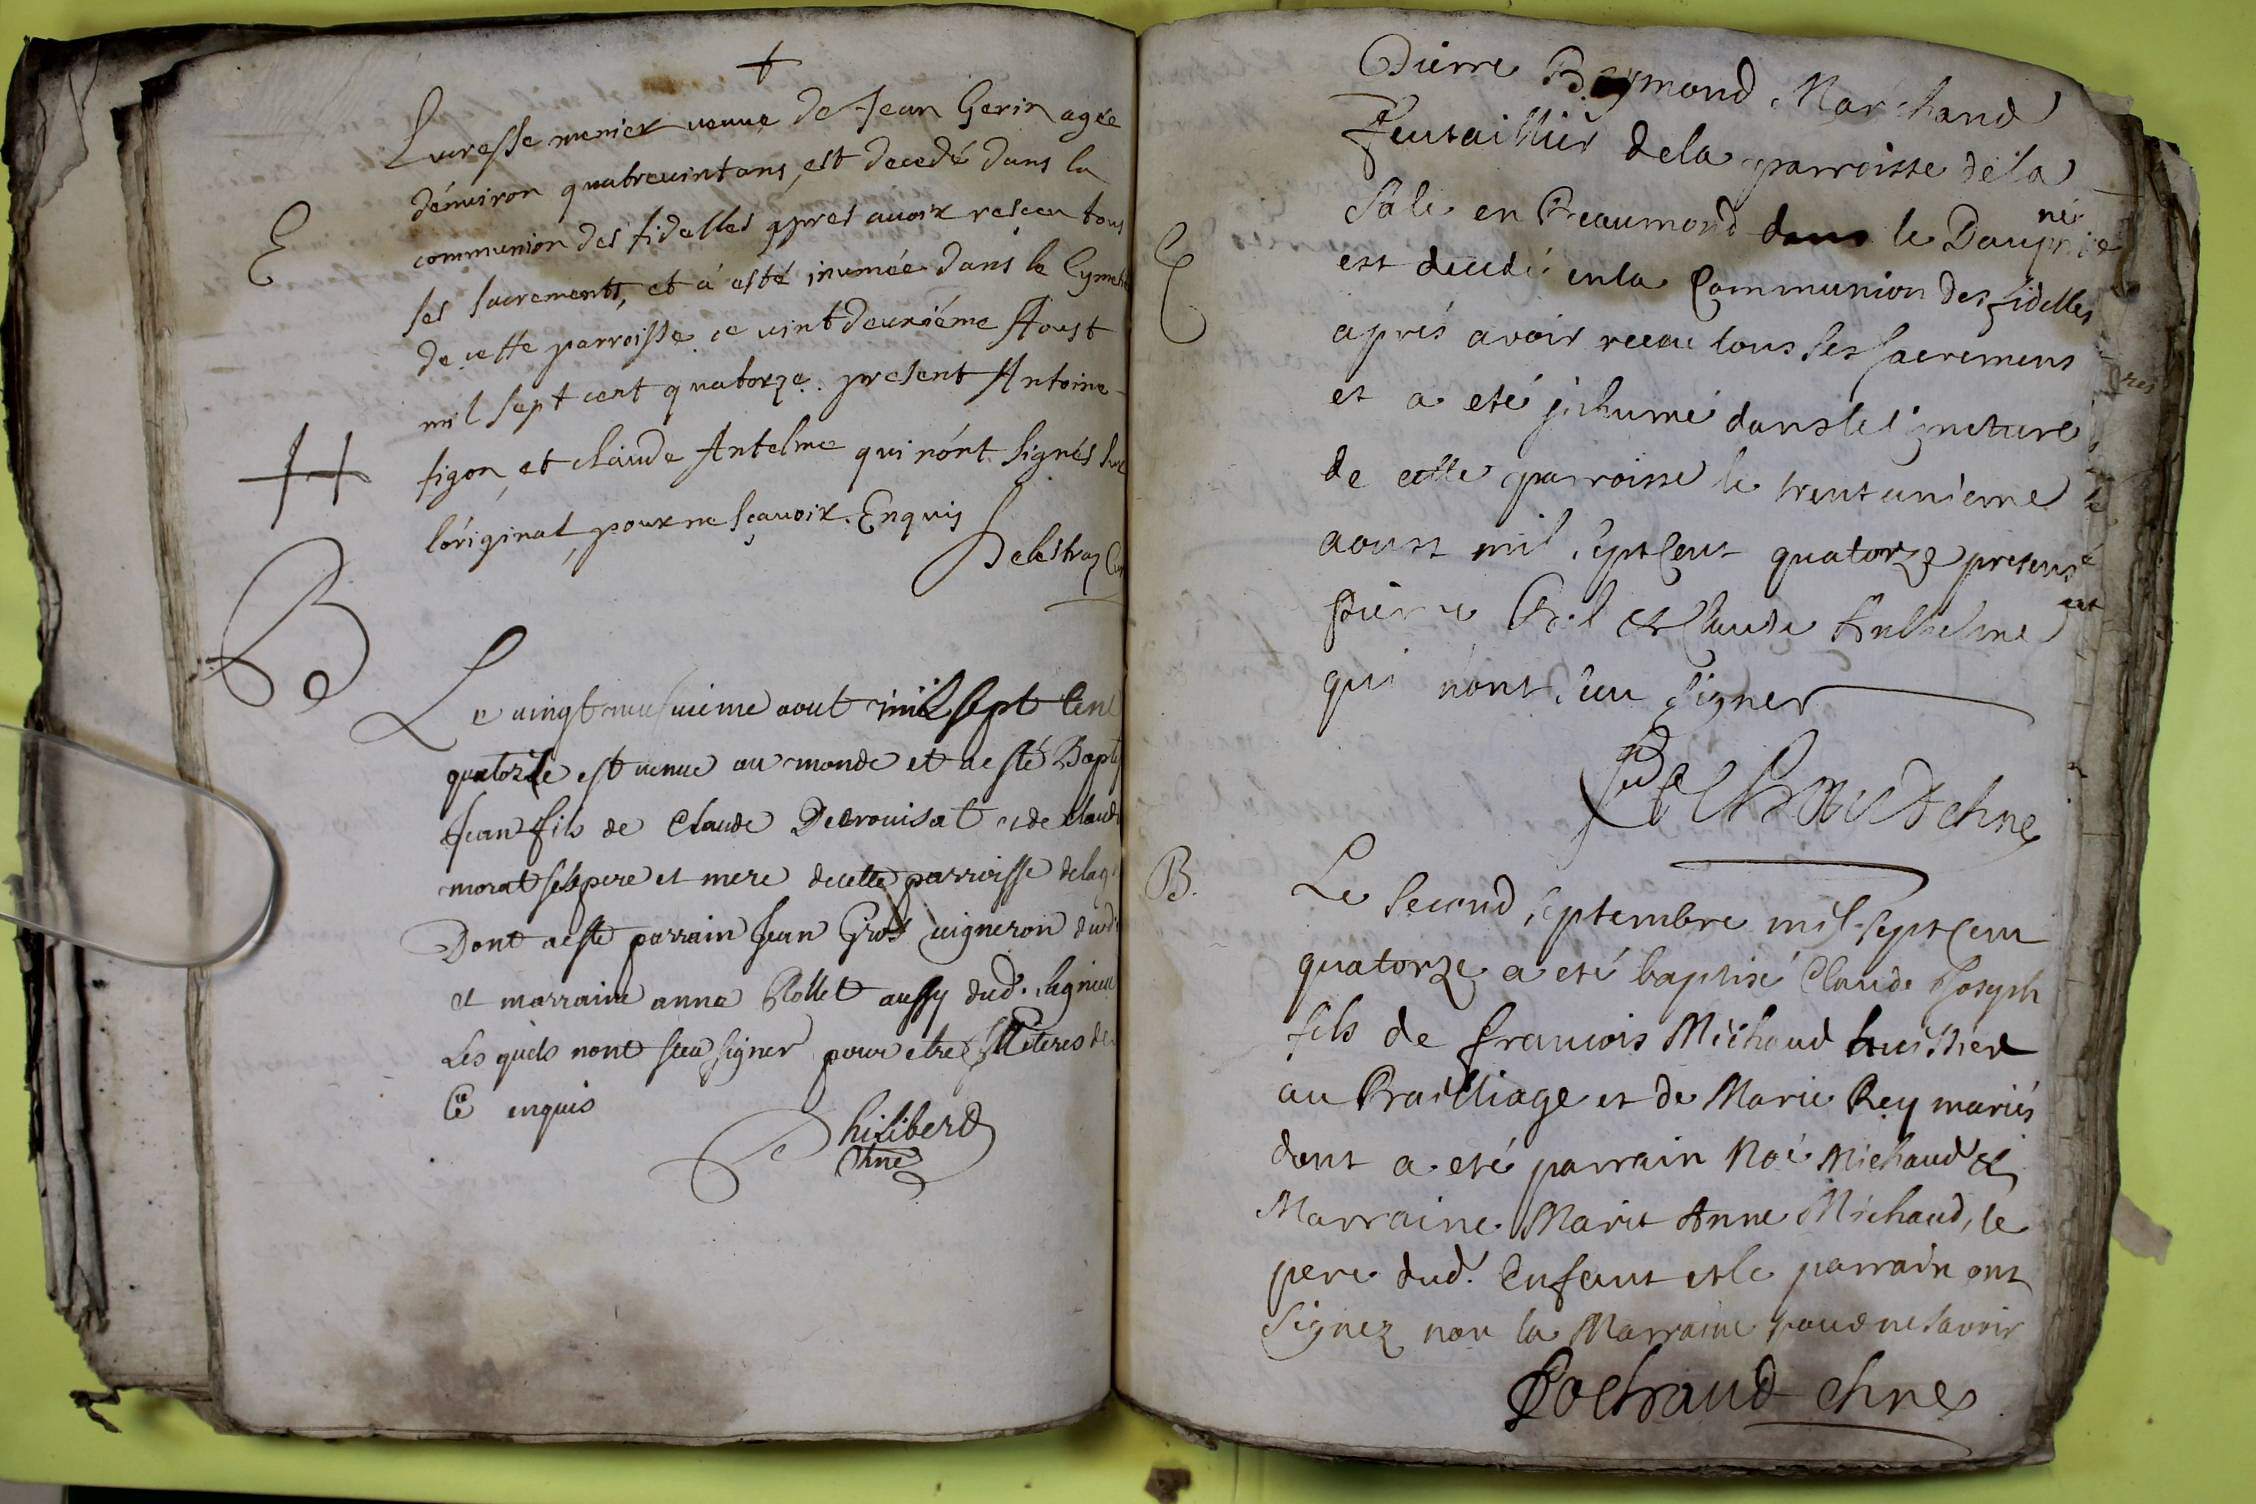 +
Lucresse menier veuve de Jean Gerin agée
d'énviron quatrevint ans, est decedé dans la
E
communion des fidelles apres avoir resceu tous
ses sacrements, et á esté inumée dans le Cymeti
de cette parroisse ce vint deuxiéme Aoust
mil sept cent quatorze. present Antoine
figon, et claude Antelme qui n'ónt signés sur
l'óriginal, pour ne sçavoir. Enquis
Delestraz Cur
B
Le vingt neufvieme aout mil sept Cent
quatorze est venue au monde et a esté Bapti
Jean fils de Claude Decrouisat et de Claud
morat ses pere et mere de cette parroisse de lag
Dont a esté parrain Jean Gros vigneron dud
et marraine anne Rollet aussy dud. lagnieu
Les quels nont sceu signer pour etre illiteres de
Ce enquis
Philiberd
Chne
Pierre Raymond Marchand
de la parroisse de la
Sale en Beaumond dans le Dauphiné
E
est decedé en la Communion des fidelles
aprés avoir receu tous ses sacremens
et a eté jnhumé dans le
de cette parroisse le trent unieme
aoust mil sept Cent quatorze present
Pierre et Claude Anthelme
qui n'ont sceu signer
Pochraud chne
B.
Le second septembre mil sept cent
quatorze a eté baptisé Claude Joseph
fils de francois Michaud huissier
au Bailliage et de Marie Rey mariés
dont a eté parrain Noé Michaud et
Marraine Marie Anne Michaud, le
pere dud. Enfant et le parrain ont
signez non la Marraine pour ne savoir
Pochraud chne